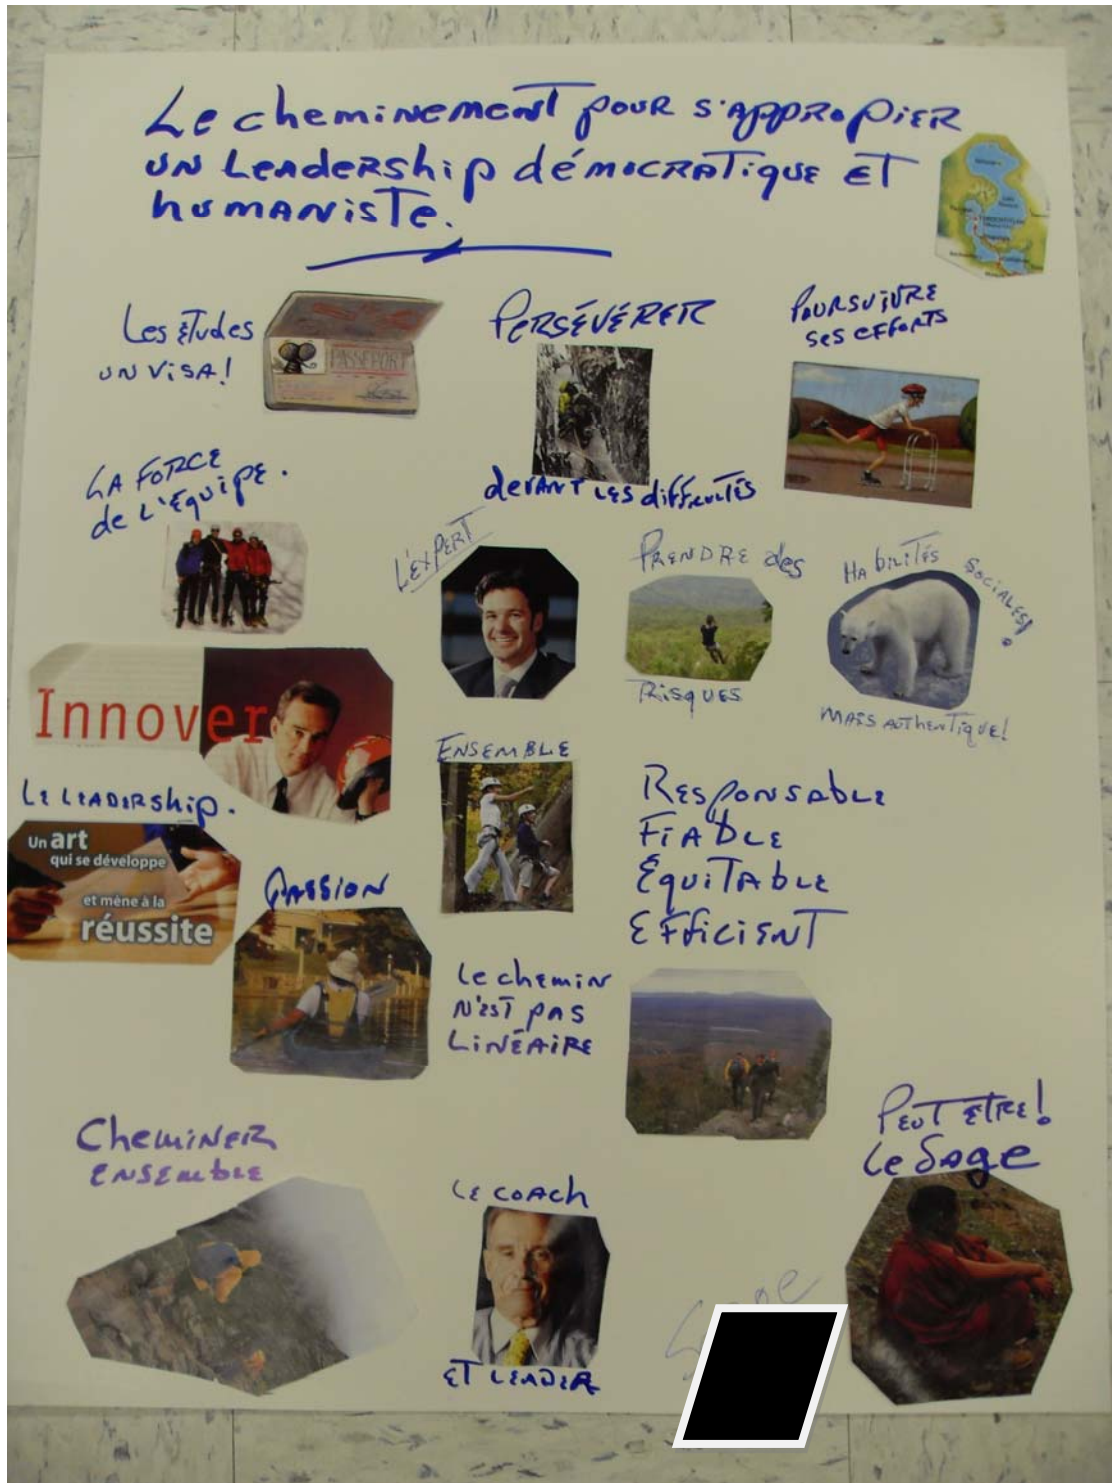 Le cheminement pour s'appropier
un leadership démocratique et
humaniste.
Les études
un visa!
PASSEPORT
Persévérer
devant les difficultés
Poursuivre
ses efforts
La force
de l'équipe.
L'expert
Prendre des
risques
Habilités sociales!
mais authentique!
Innover
Ensemble
Le leadership.
Un art
qui se développe
et mène à la
réussite
Responsable
Fiable
Équitable
Efficient
Passion
Le chemin
n'est pas
linéaire
Cheminer
ensemble
Le coach
et leader
Peut être!
Le Sage